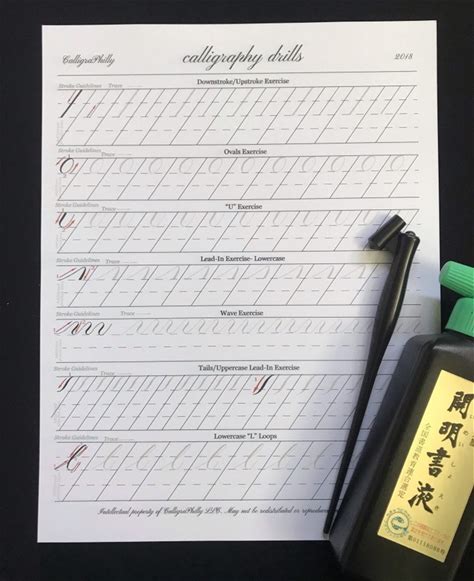 CalligraPhilly calligraphy drills 2018
Downstroke/Upstroke Exercise
Stroke Guidelines Trace
Ovals Exercise
Stroke Guidelines Trace
"U" Exercise
Stroke Guidelines Trace
Lead-In Exercise- Lowercase
Stroke Guidelines Trace
Wave Exercise
Stroke Guidelines Trace
Tails/Uppercase Lead-In Exercise
Stroke Guidelines Trace
Lowercase "L" Loops
Stroke Guidelines Trace
Intellectual property of CalligraPhilly LLC. May not be redistributed or
開明書液
全国書道教育連合選定